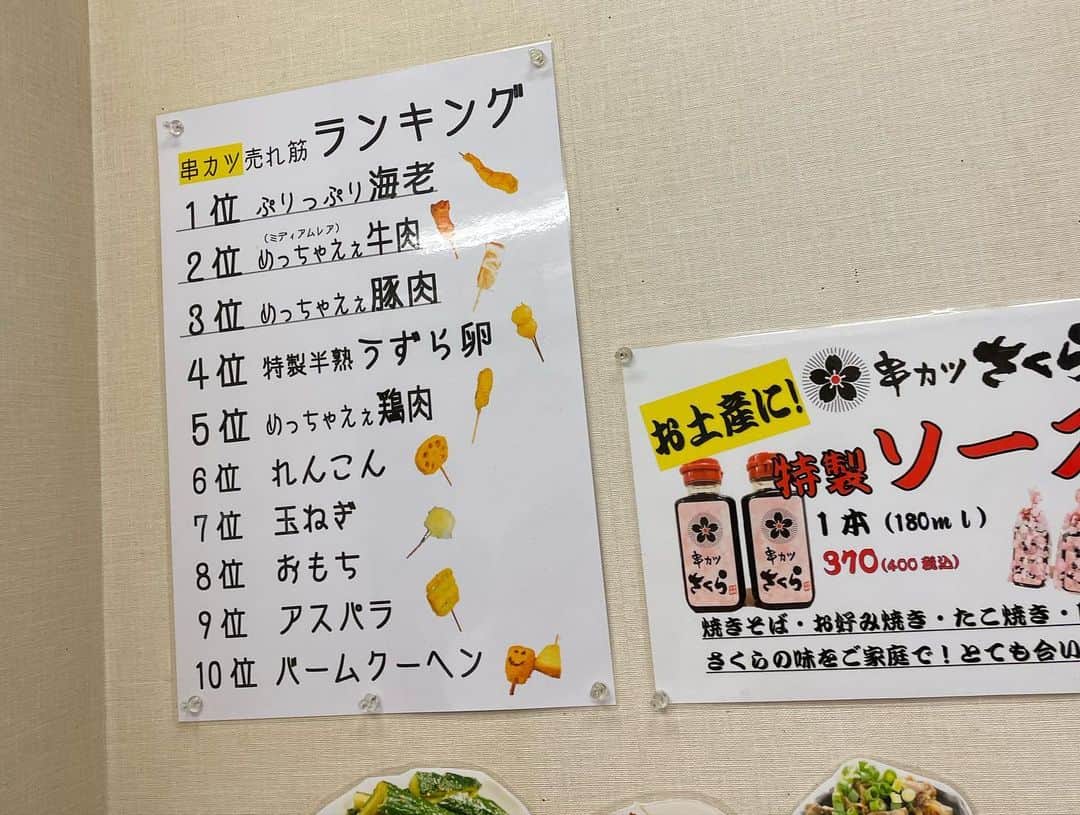 串カツ売れ筋ランキング
1位 ぷりっぷり海老
(ミディアムレア)
2位 めっちゃえぇ牛肉
3位 めっちゃえぇ豚肉
4位 特製半熟うずら卵
5位 めっちゃえぇ鶏肉
6位 れんこん
7位 玉ねぎ
8位 おもち
9位 アスパラ
10位 バームクーヘン
お土産に!
串カツ さくら
特製ソース
1本 (180ml)
370(400税込)
串カツ
さくら
串カツ
さくら
焼きそば・お好み焼き・たこ焼き・
さくらの味をご家庭で!とても合い